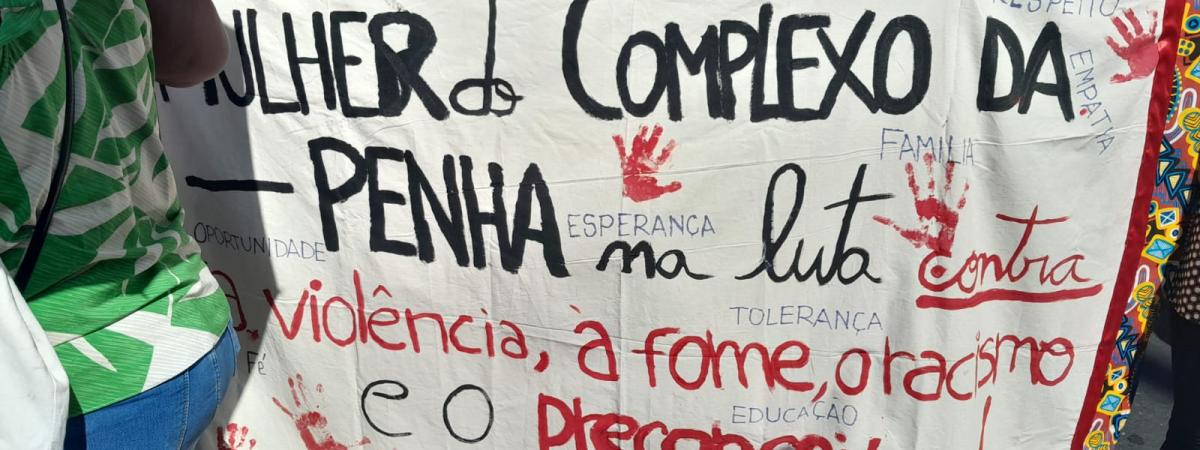 RESPEITO
MULHER do COMPLEXO DA
EMPATIA
FAMILIA
— PENHA na luta contra
ESPERANÇA
OPORTUNIDADE
a violência, à fome, o racismo
TOLERANÇA
Fé
e o
EDUCAÇÃO